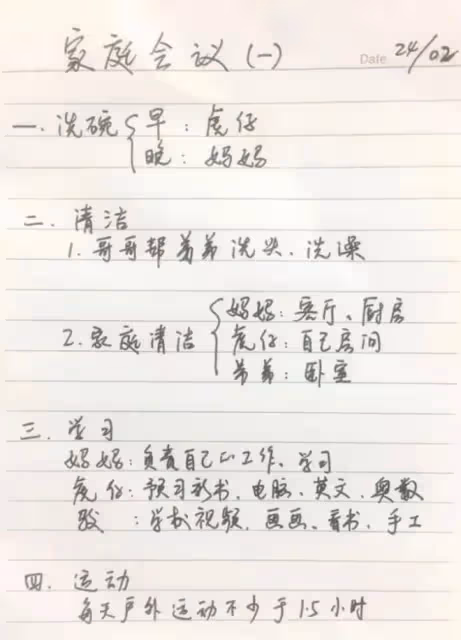 家庭会议(一) Date 24/02
一.洗碗{早:虎仔
晚:妈妈
二.清洁
1.哥哥帮弟弟洗头、洗澡
妈妈:客厅、厨房
2.家庭清洁{虎仔:自己房间
弟弟:卧室
三.学习
妈妈:负责自己的工作、学习
虎仔:预习新书、电脑、英文、奥数
:学校视频、画画、看书、手工
四.运动
每天户外运动不少于1.5小时